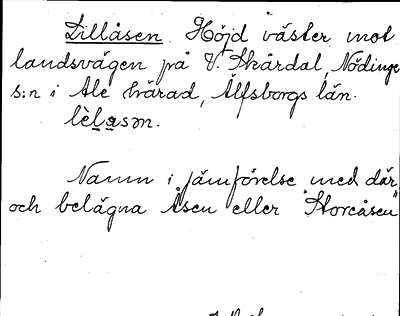 Lillåsen. Höjd väster mot
landsvägen på V. Skårdal, Nödinge
s:n i Ale härad, Älfsborgs län.
lèlasm.
Namn i jämförelse med där
och belägna Åsen eller "Storeåsen"